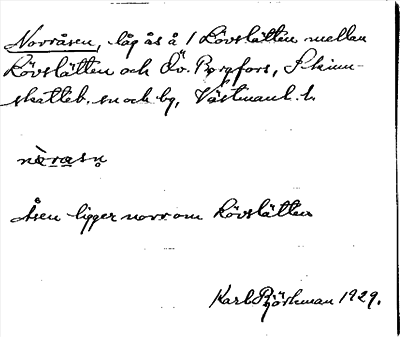 Norråsen, låg ås å 1 Lövslätten mellan
Lövslätten och Öv. Borgfors, Skinn-
skatteb. sn och bg, Västmanl. l.
nò̱ra̱sn̥
Åsen ligger norr om Lövslätten
Karl Björkman 1929.